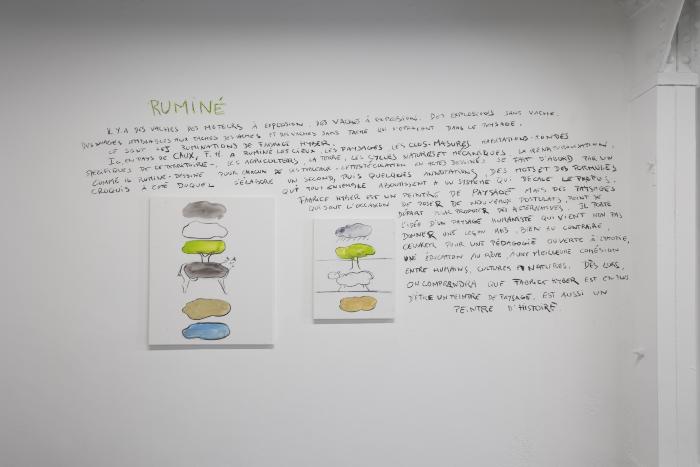 RUMINÉ
IL Y A DES VACHES, DES MOTEURS À EXPLOSION, DES VACHES À EXPLOSIONS. DES EXPLOSIONS SANS VACHE.
DES VACHES AUX TACHES ET DES VACHES SANS TACHE QUI S'EFFACENT DANS LE PAYSAGE.
CE SONT LES RUMINATIONS DE FABRICE HYBER.
ICI, EN PAYS DE CAUX, F.H. A RUMINÉ LES LIEUX, LES PAYSAGES, LES CLOS-MASURES, HABITATIONS
SPÉCIFIQUES DE CE TERRITOIRE, LES AGRICULTEURS, LA TERRE, LES CYCLES NATURELS ET MÉCANIQUES, LA
COMME IL RUMINE, DESSINE POUR CHACUN DE SES TABLEAUX, CETTE EN ACTES DESSINÉS SE FAIT D'ABORD PAR UN
CROQUIS À CÔTÉ DUQUEL S'ÉLABORE UN SECOND, PUIS QUELQUES ANNOTATIONS, DES MOTS ET DES FORMULES
QUI TOUT ENSEMBLE ABOUTISSENT À UN SYSTÈME QUI DÉCALE LE PROPOS.
FABRICE HYBER EST UN PEINTRE DE PAYSAGE MAIS DES PAYSAGES
QUI SONT L'OCCASION DE POSER DE NOUVEAUX POSTULATS, POINT DE
DÉPART POUR PROPOSER DES ALTERNATIVES. IL PORTE
L'IDÉE D'UN PAYSAGE HUMANISTE QUI VIENT NON PAS
DONNER UNE LEÇON MAIS, BIEN AU CONTRAIRE,
ŒUVRER POUR UNE PÉDAGOGIE OUVERTE À L'
UNE ÉDUCATION AU RÊVE, À UNE MEILLEURE COHÉSION
ENTRE HUMAINS, CULTURES & NATURES. DÈS LORS,
ON COMPRENDRA QUE FABRICE HYBER EST EN PLUS
D'ÊTRE UN PEINTRE DE PAYSAGE, EST AUSSI UN
PEINTRE D'HISTOIRE.